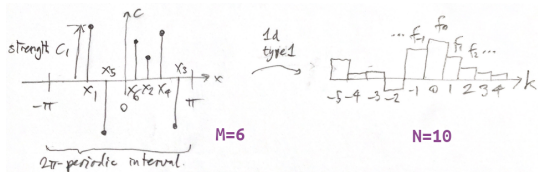 C
strength C₁
x₁ x₅ x₆ x₂ x₄ x₃ x
-π 0 π
2π-periodic interval.
M=6
1d
type 1
... f₋₁ f₀ f₁ f₂ ...
-5 -4 -3 -2 -1 0 1 2 3 4 k
N=10